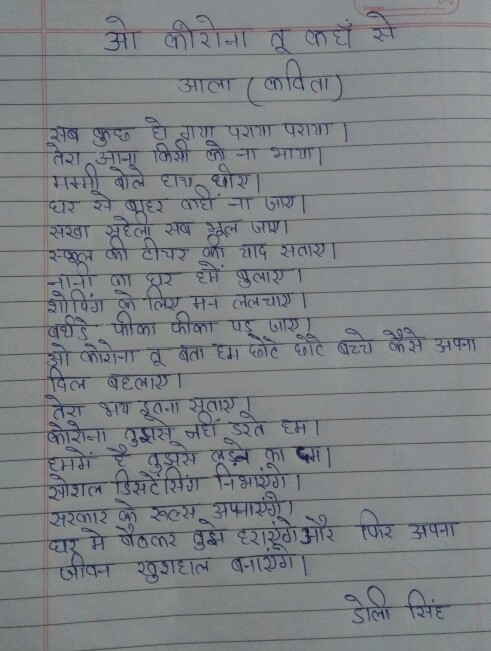 ओ कोरोना तू कहाँ से
आला (कविता)
सब कुछ हो गया पराया पराया।
तेरा आना किसी को ना भाया।
मम्मी बोले हाथ धोए।
घर से बाहर कहीं ना जाए।
सखा सहेली सब भूल जाए।
स्कूल की टीचर की याद सताए।
नानी का घर हमें बुलाए।
शोपिंग के लिए मन ललचाए।
बर्थडे फीका फीका पड़ जाए।
ओ कोरोना तू बता हम छोटे छोटे बच्चे कैसे अपना
दिल बहलाए।
तेरा भय इतना सताए।
कोरोना तुझसे नहीं डरते हम।
हममें है तुझसे लड़ने का दम।
सोशल डिस्टेंसिंग निभाएंगे।
सरकार के रूल्स अपनाएंगे।
घर में बैठकर तुझे हराएंगे और फिर अपना
जीवन खुशहाल बनाएंगे।
डोली सिंह